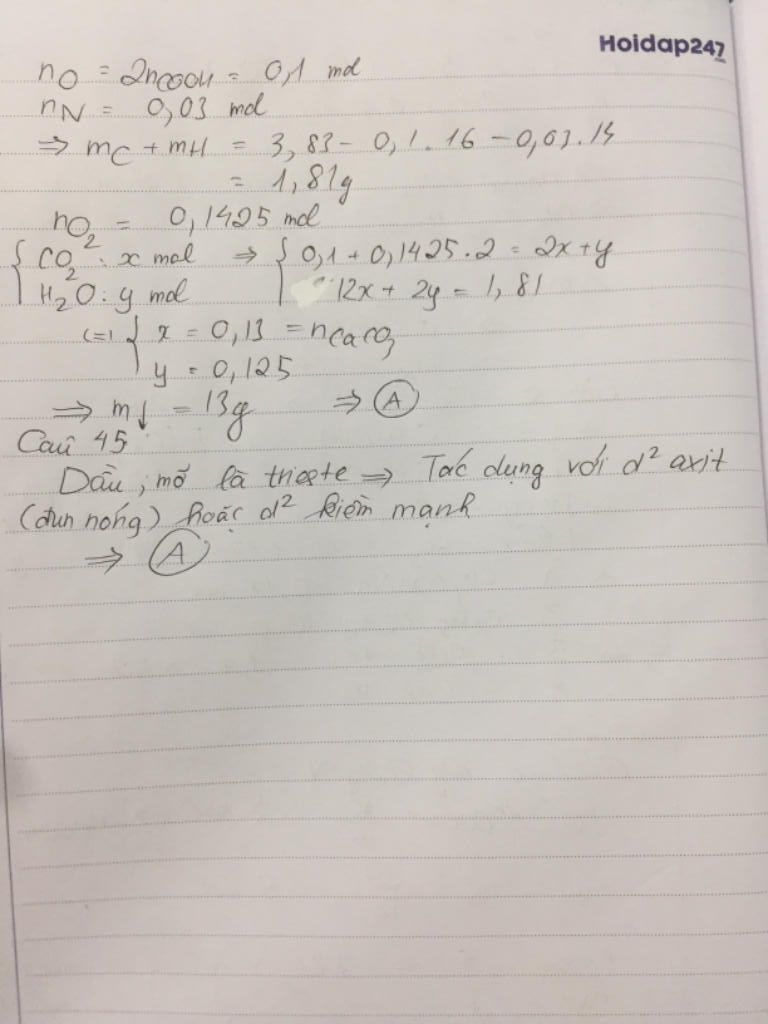 Hoidap247
nO = 2nCOOH = 0,1 mol
nN = 0,03 mol
⇒ mC + mH = 3,83 - 0,1.16 - 0,03.14
= 1,81g
nO2 = 0,1425 mol
{ CO2: x mol ⇒ { 0,1 + 0,1425.2 = 2x+y
H2O: y mol 12x + 2y = 1,81
(=) { x = 0,13 = nCaCO3
y = 0,125
⇒ m↓ = 13g ⇒ A
Câu 45
Dầu, mỡ là trieste ⇒ Tác dụng với d² axit
(đun nóng) hoặc d² kiềm mạnh
⇒ A